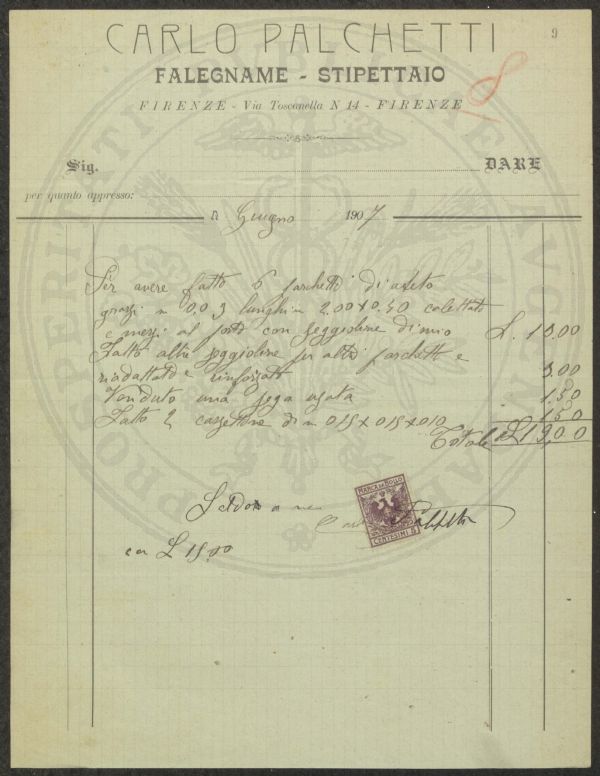 CARLO PALCHETTI
9
FALEGNAME - STIPETTAIO
8
FIRENZE - Via Toscanella N 14 - FIRENZE
Sig. DARE
per quanto appresso:
Giugno 1907
Per avere fatto 6 parchetti di abeto
grossi m 0,03 lunghi m 2.00x0.50 calettati
e messi al posto con seggioline di mio L. 13.00
Fatto altre seggioline per altri parchetti e
riadattato e rinforzato 3.00
Venduto una sega usata 1.50
Fatto 2 cassettine di m 015x015x010 1.50
Totale £ 19,00
Saldo a me
MARCA DA BOLLO
CENTESIMI 5
Carlo Palchetti